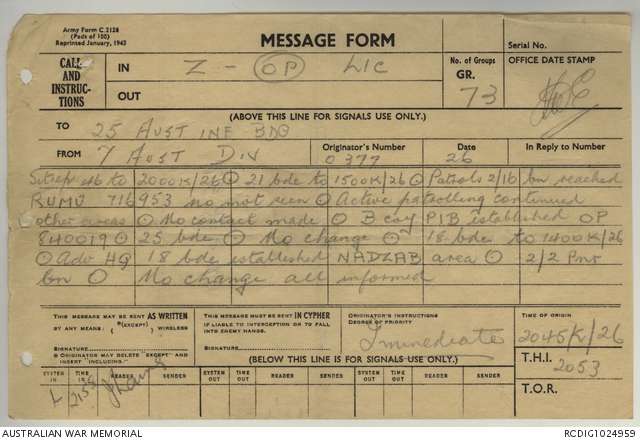 Army Form C.2128
(Pads of 100)
Reprinted January, 1943
MESSAGE FORM
Serial No.
CALL AND INSTRUC-TIONS
IN Z - OP LIC
No. of Groups GR. 73
OFFICE DATE STAMP
OUT
(ABOVE THIS LINE FOR SIGNALS USE ONLY.)
TO 25 AUST INF BDE
FROM 7 AUST DIV
Originator's Number 0377
Date 26
In Reply to Number
Sitrep 46 to 2000K/26 ⊙ 21 bde to 1500K/26 ⊙ Patrols 2/16 bn reached
RUMU 716953 no mot seen ⊙ Active patrolling continued
other areas ⊙ No contact made ⊙ B coy PIB established OP
840019 ⊙ 25 bde ⊙ No change ⊙ 18 bde to 1400K/26
⊙ Adv HQ 18 bde established NADZAB area ⊙ 2/2 Pnr
bn ⊙ No change all informed
THIS MESSAGE MAY BE SENT AS WRITTEN
BY ANY MEANS. *(EXCEPT) ( ) WIRELESS
SIGNATURE
ORIGINATOR MAY DELETE "EXCEPT" AND INSERT "INCLUDING."
THIS MESSAGE MUST BE SENT IN CYPHER
IF LIABLE TO INTERCEPTION OR TO FALL INTO ENEMY HANDS.
SIGNATURE
ORIGINATOR'S INSTRUCTIONS
DEGREE OF PRIORITY
Immediate
TIME OF ORIGIN
2045K/26
(BELOW THIS LINE IS FOR SIGNALS USE ONLY.)
T.H.I. 2053
SYSTEM IN TIME IN READER SENDER SYSTEM OUT TIME OUT READER SENDER SYSTEM OUT TIME OUT READER SENDER
L 2155
T.O.R.
AUSTRALIAN WAR MEMORIAL
RCDIG1024959